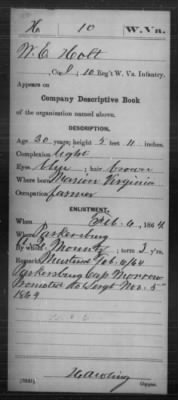 H 10 W.Va.
W. E. Holt
Co. , 10 Reg't W. Va. Infantry.
Appears on
Company Descriptive Book
of the organization named above.
DESCRIPTION.
Age 30 years; height 5 feet 11 inches.
Complexion light
Eyes blue; hair brown
Where born Marion Virginia
Occupation farmer
ENLISTMENT.
When Feb. 6, 1864
Where Parkersburg
By whom ; term 3 y'rs.
Remarks Mustered Feb. 6/64
Parkersburg Cap Morrow
Promoted to Sergt Nov. 5"
1864
Copyist.